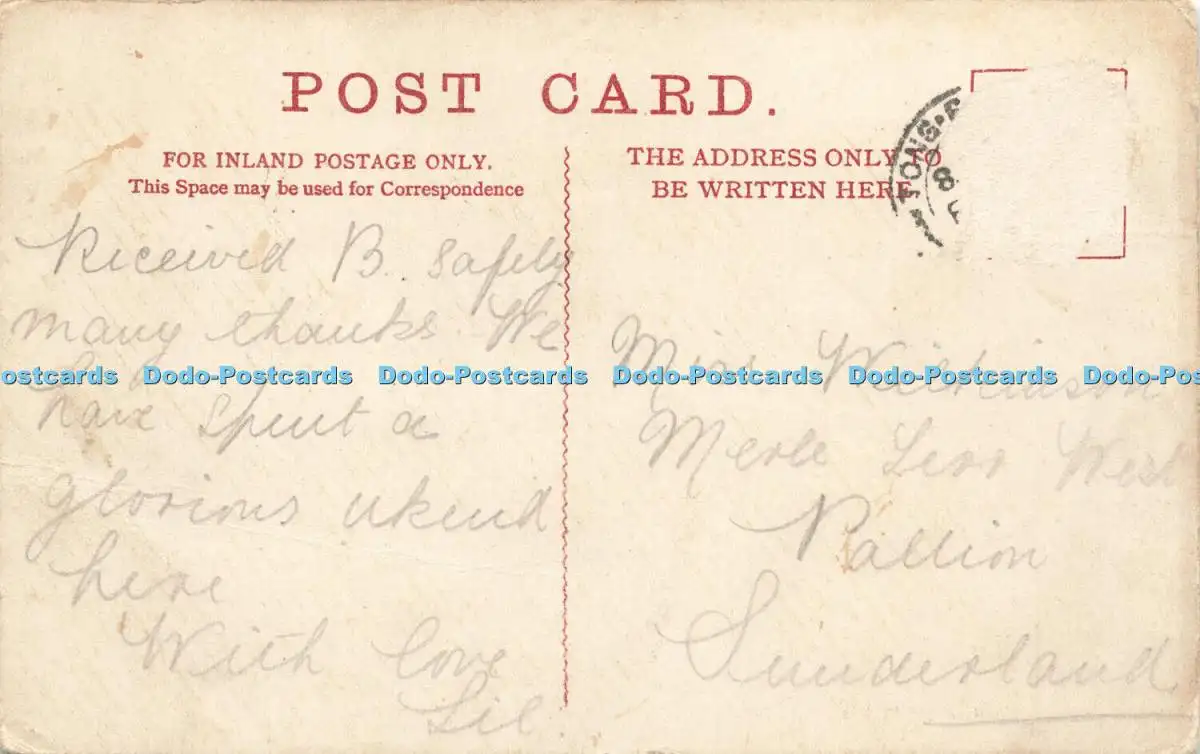 POST CARD.
FOR INLAND POSTAGE ONLY.
This Space may be used for Correspondence
THE ADDRESS ONLY TO
BE WRITTEN HERE
TONG.
8
Received B. safely
many thanks. We
have spent a
glorious wkend
here
With love
Lil.
Miss Wilkinson
Merle Terr West
Pallion
Sunderland
ostcards Dodo-Postcards Dodo-Postcards Dodo-Postcards Dodo-Postcards Dodo-Pos